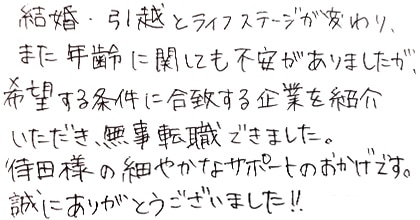 結婚・引越とライフステージが変わり、
また年齢に関しても不安がありましたが、
希望する条件に合致する企業を紹介
いただき、無事転職できました。
待田様の細やかなサポートのおかげです。
誠にありがとうございました!!